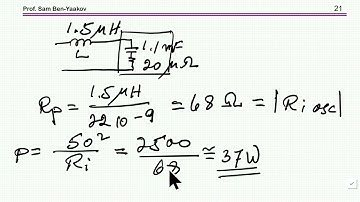 Prof. Sam Ben-Yaakov
21
1.5μH
L
1.1mF
20μΩ
Rp = 1.5μH / 2210-9 = 68 Ω = |Ri osc|
P = 50² / Ri = 2500 / 68 ≅ 37W